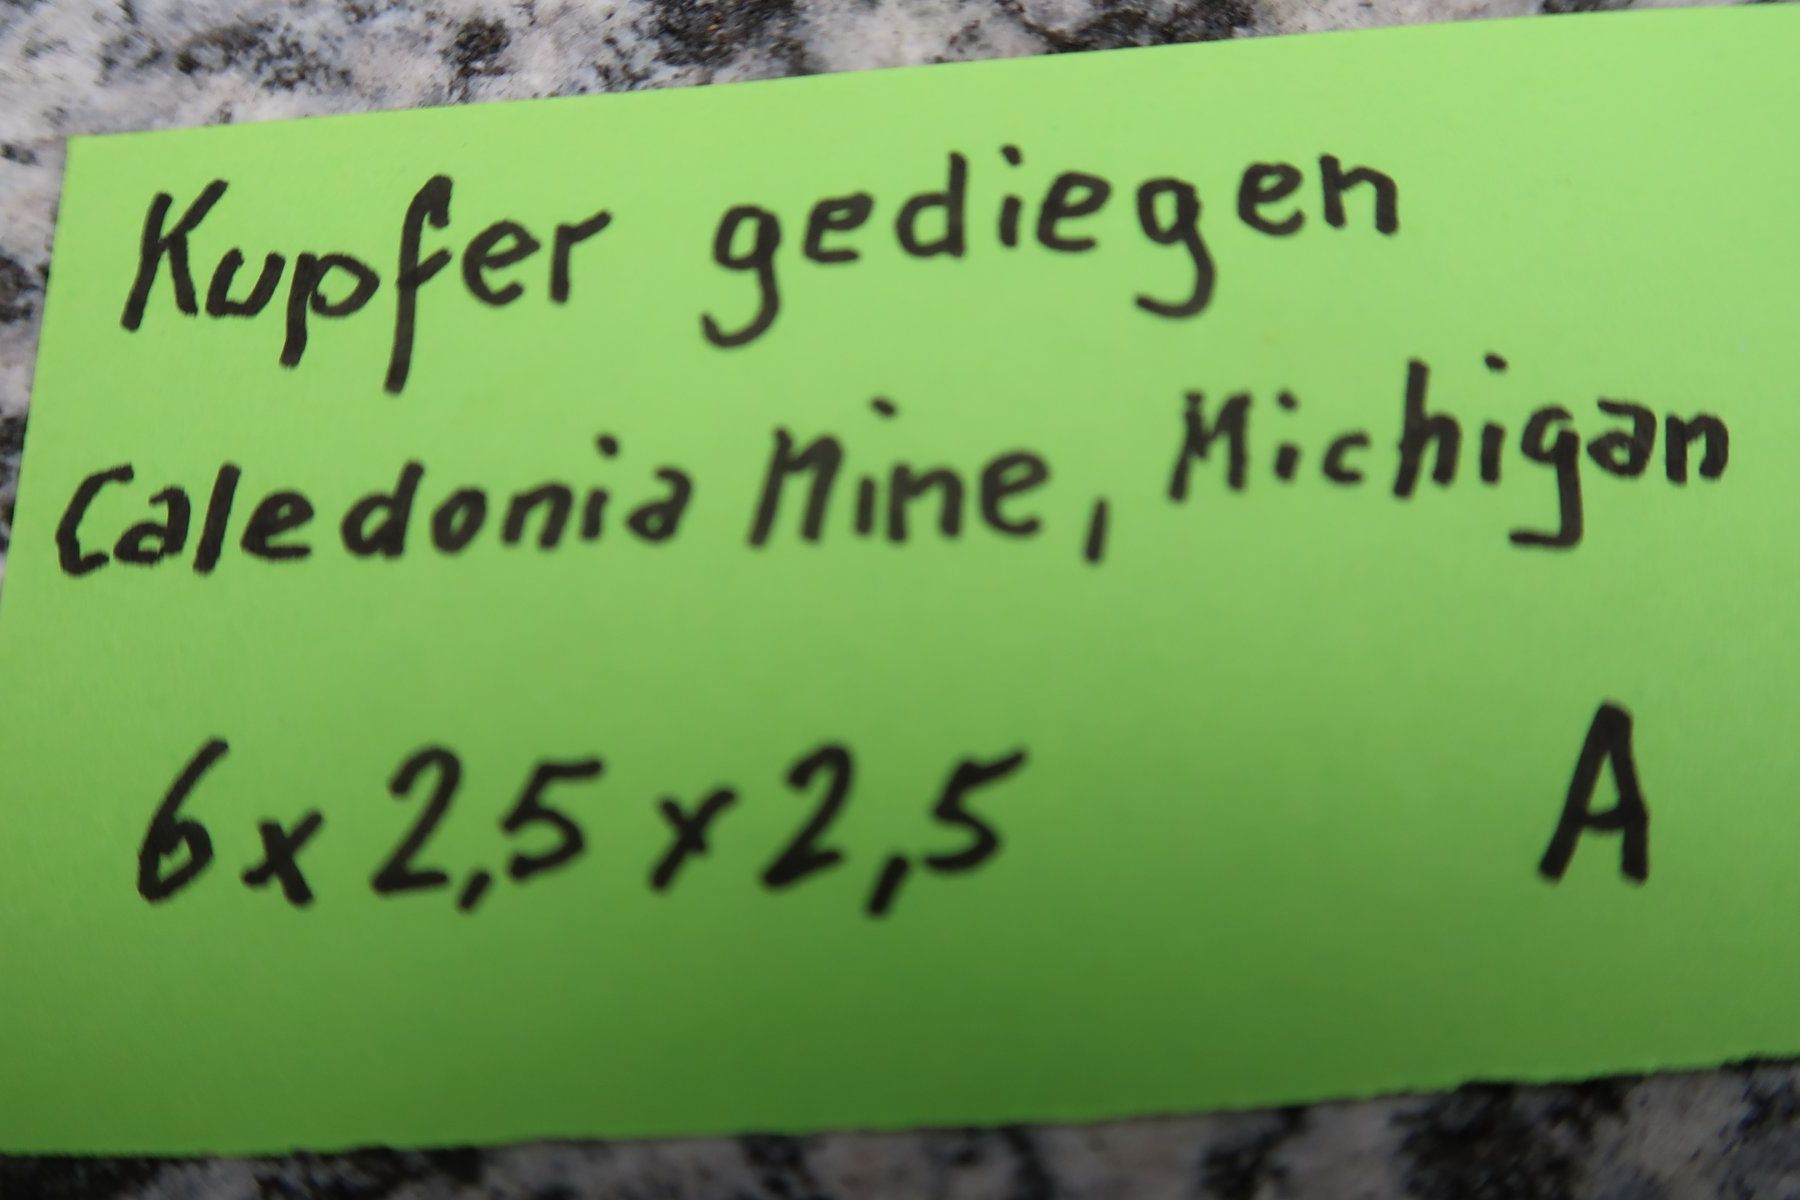 Kupfer gediegen
Caledonia Mine, Michigan
6x 2,5 x 2,5 A